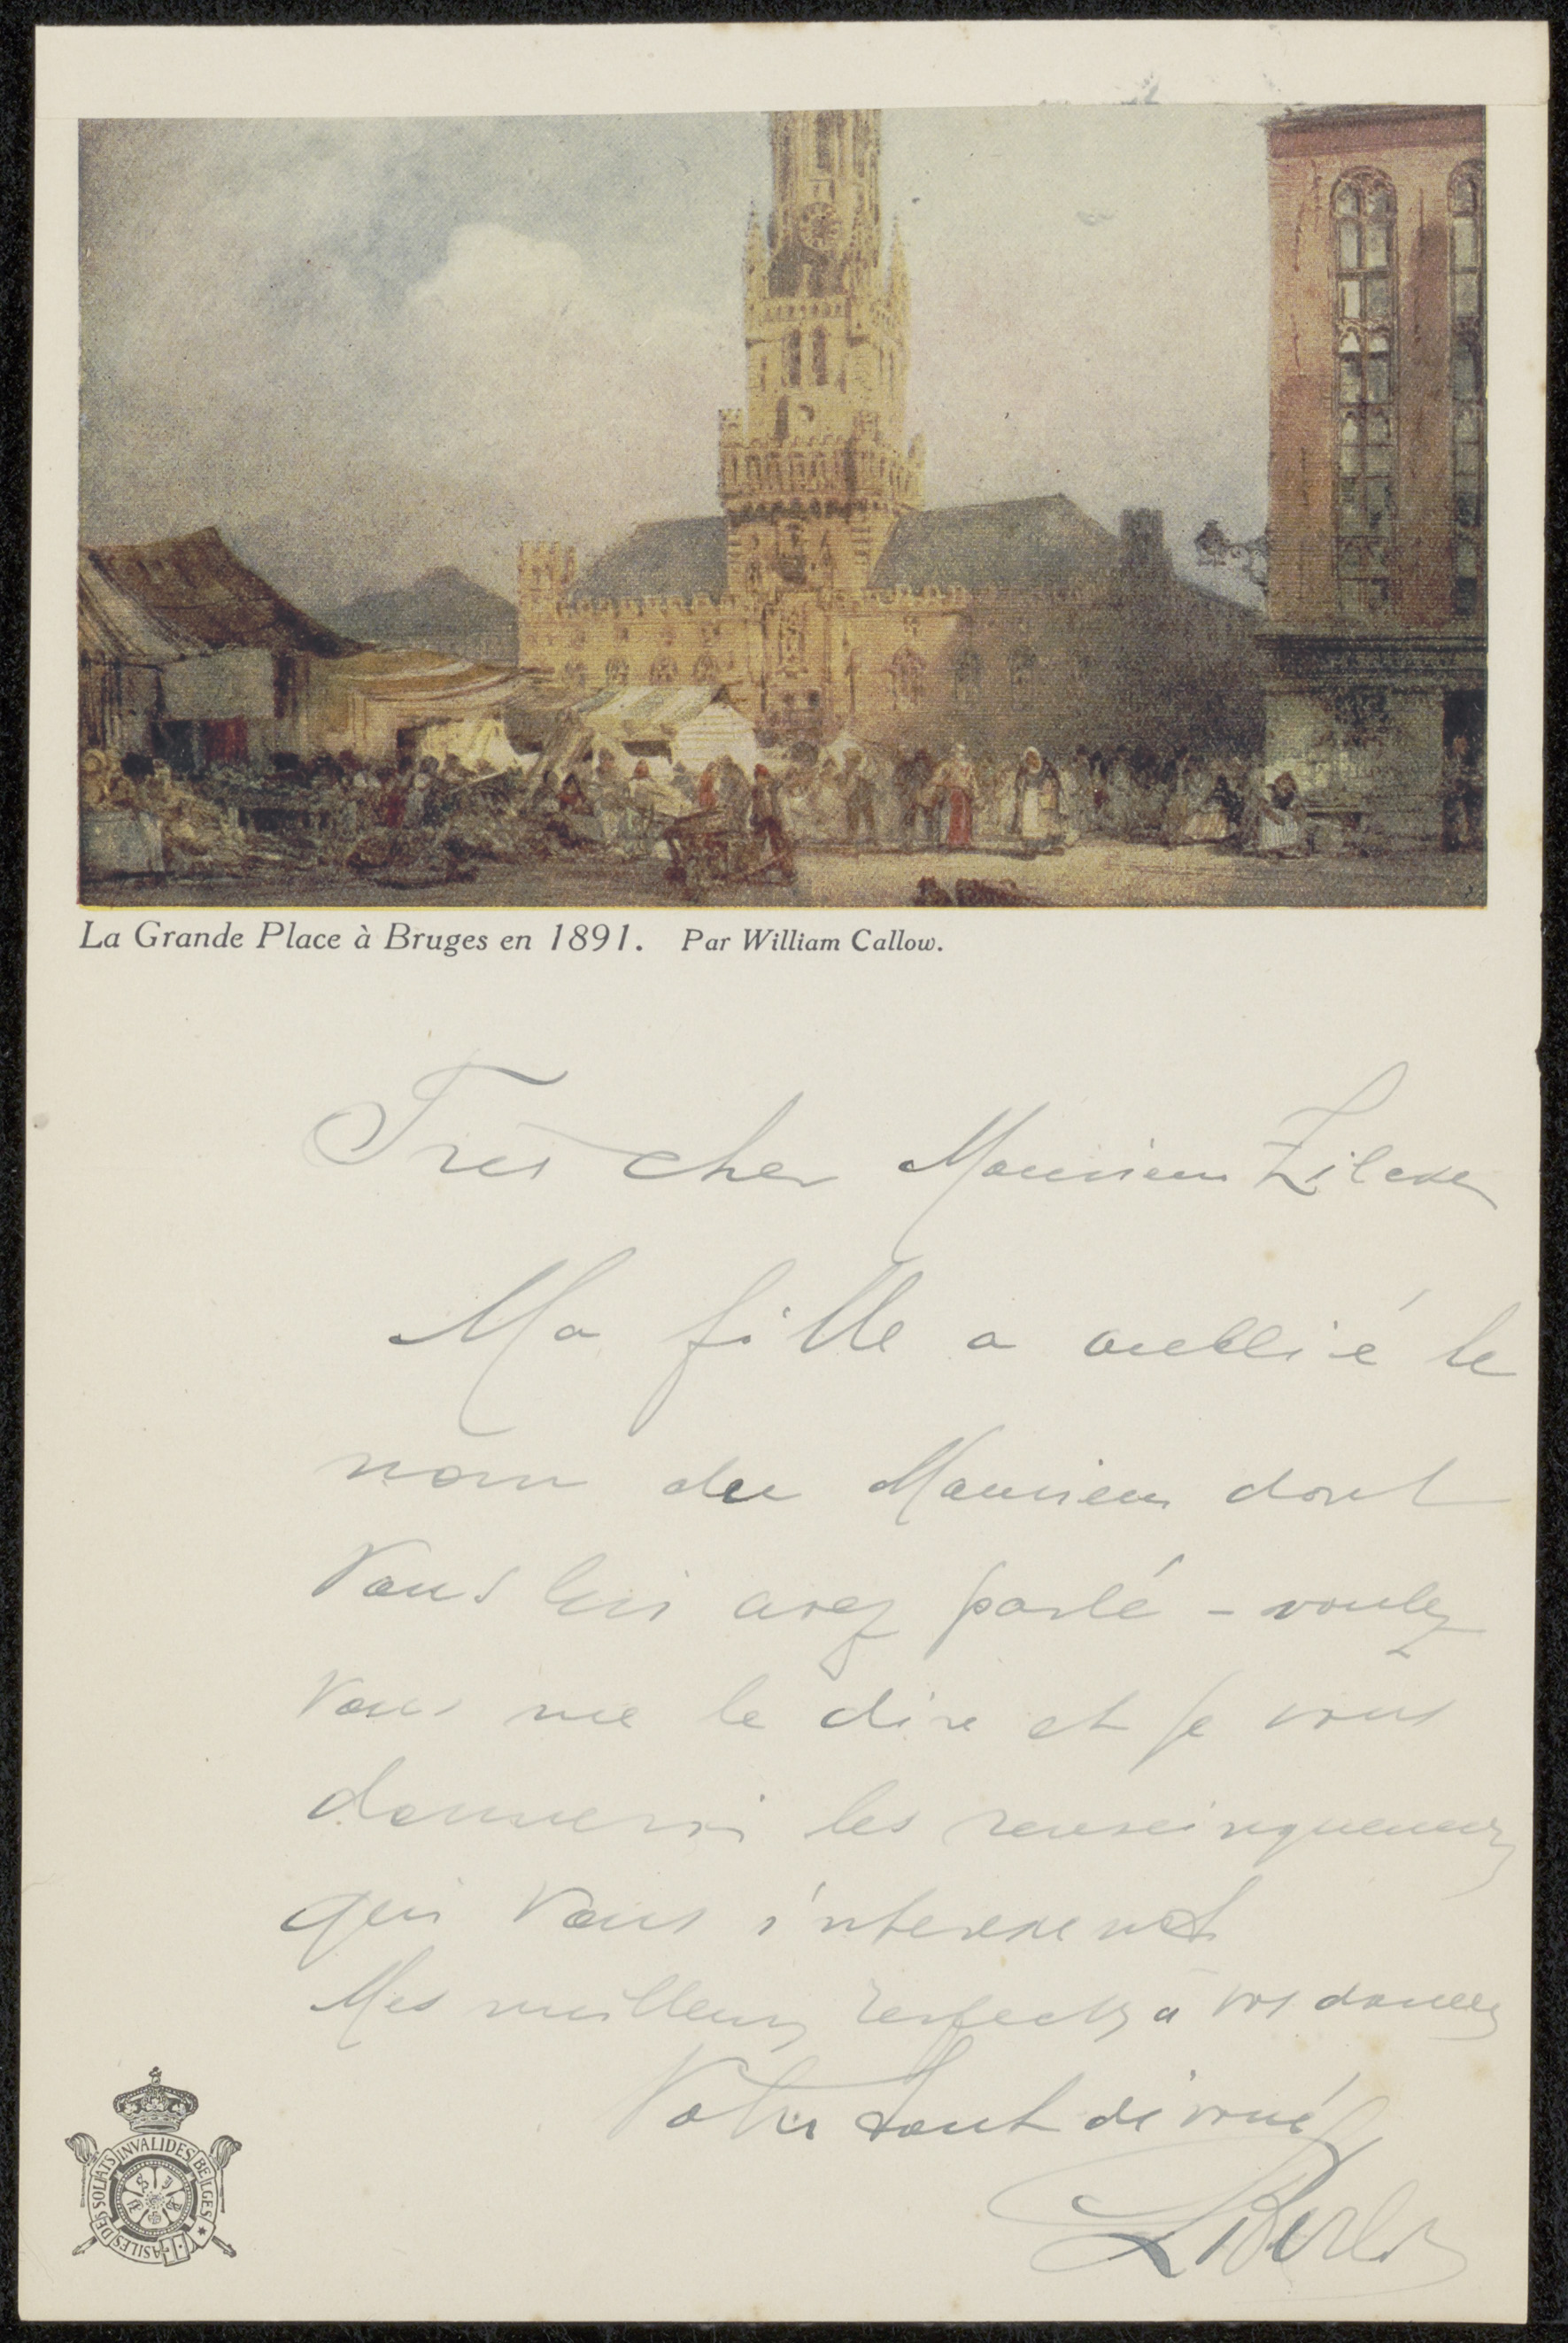 La Grande Place à Bruges en 1891. Par William Callow.
Très cher Monsieur Zilcken
Ma fille a oublié le
nom du Monsieur dont
vous lui avez parlé – voulez
vous me le dire et je vous
donnerai les renseignements
qui vous interessent
Mes meilleurs respects à vos dames
Votre tout dévoué
ASILES DES SOLDATS INVALIDES BELGES